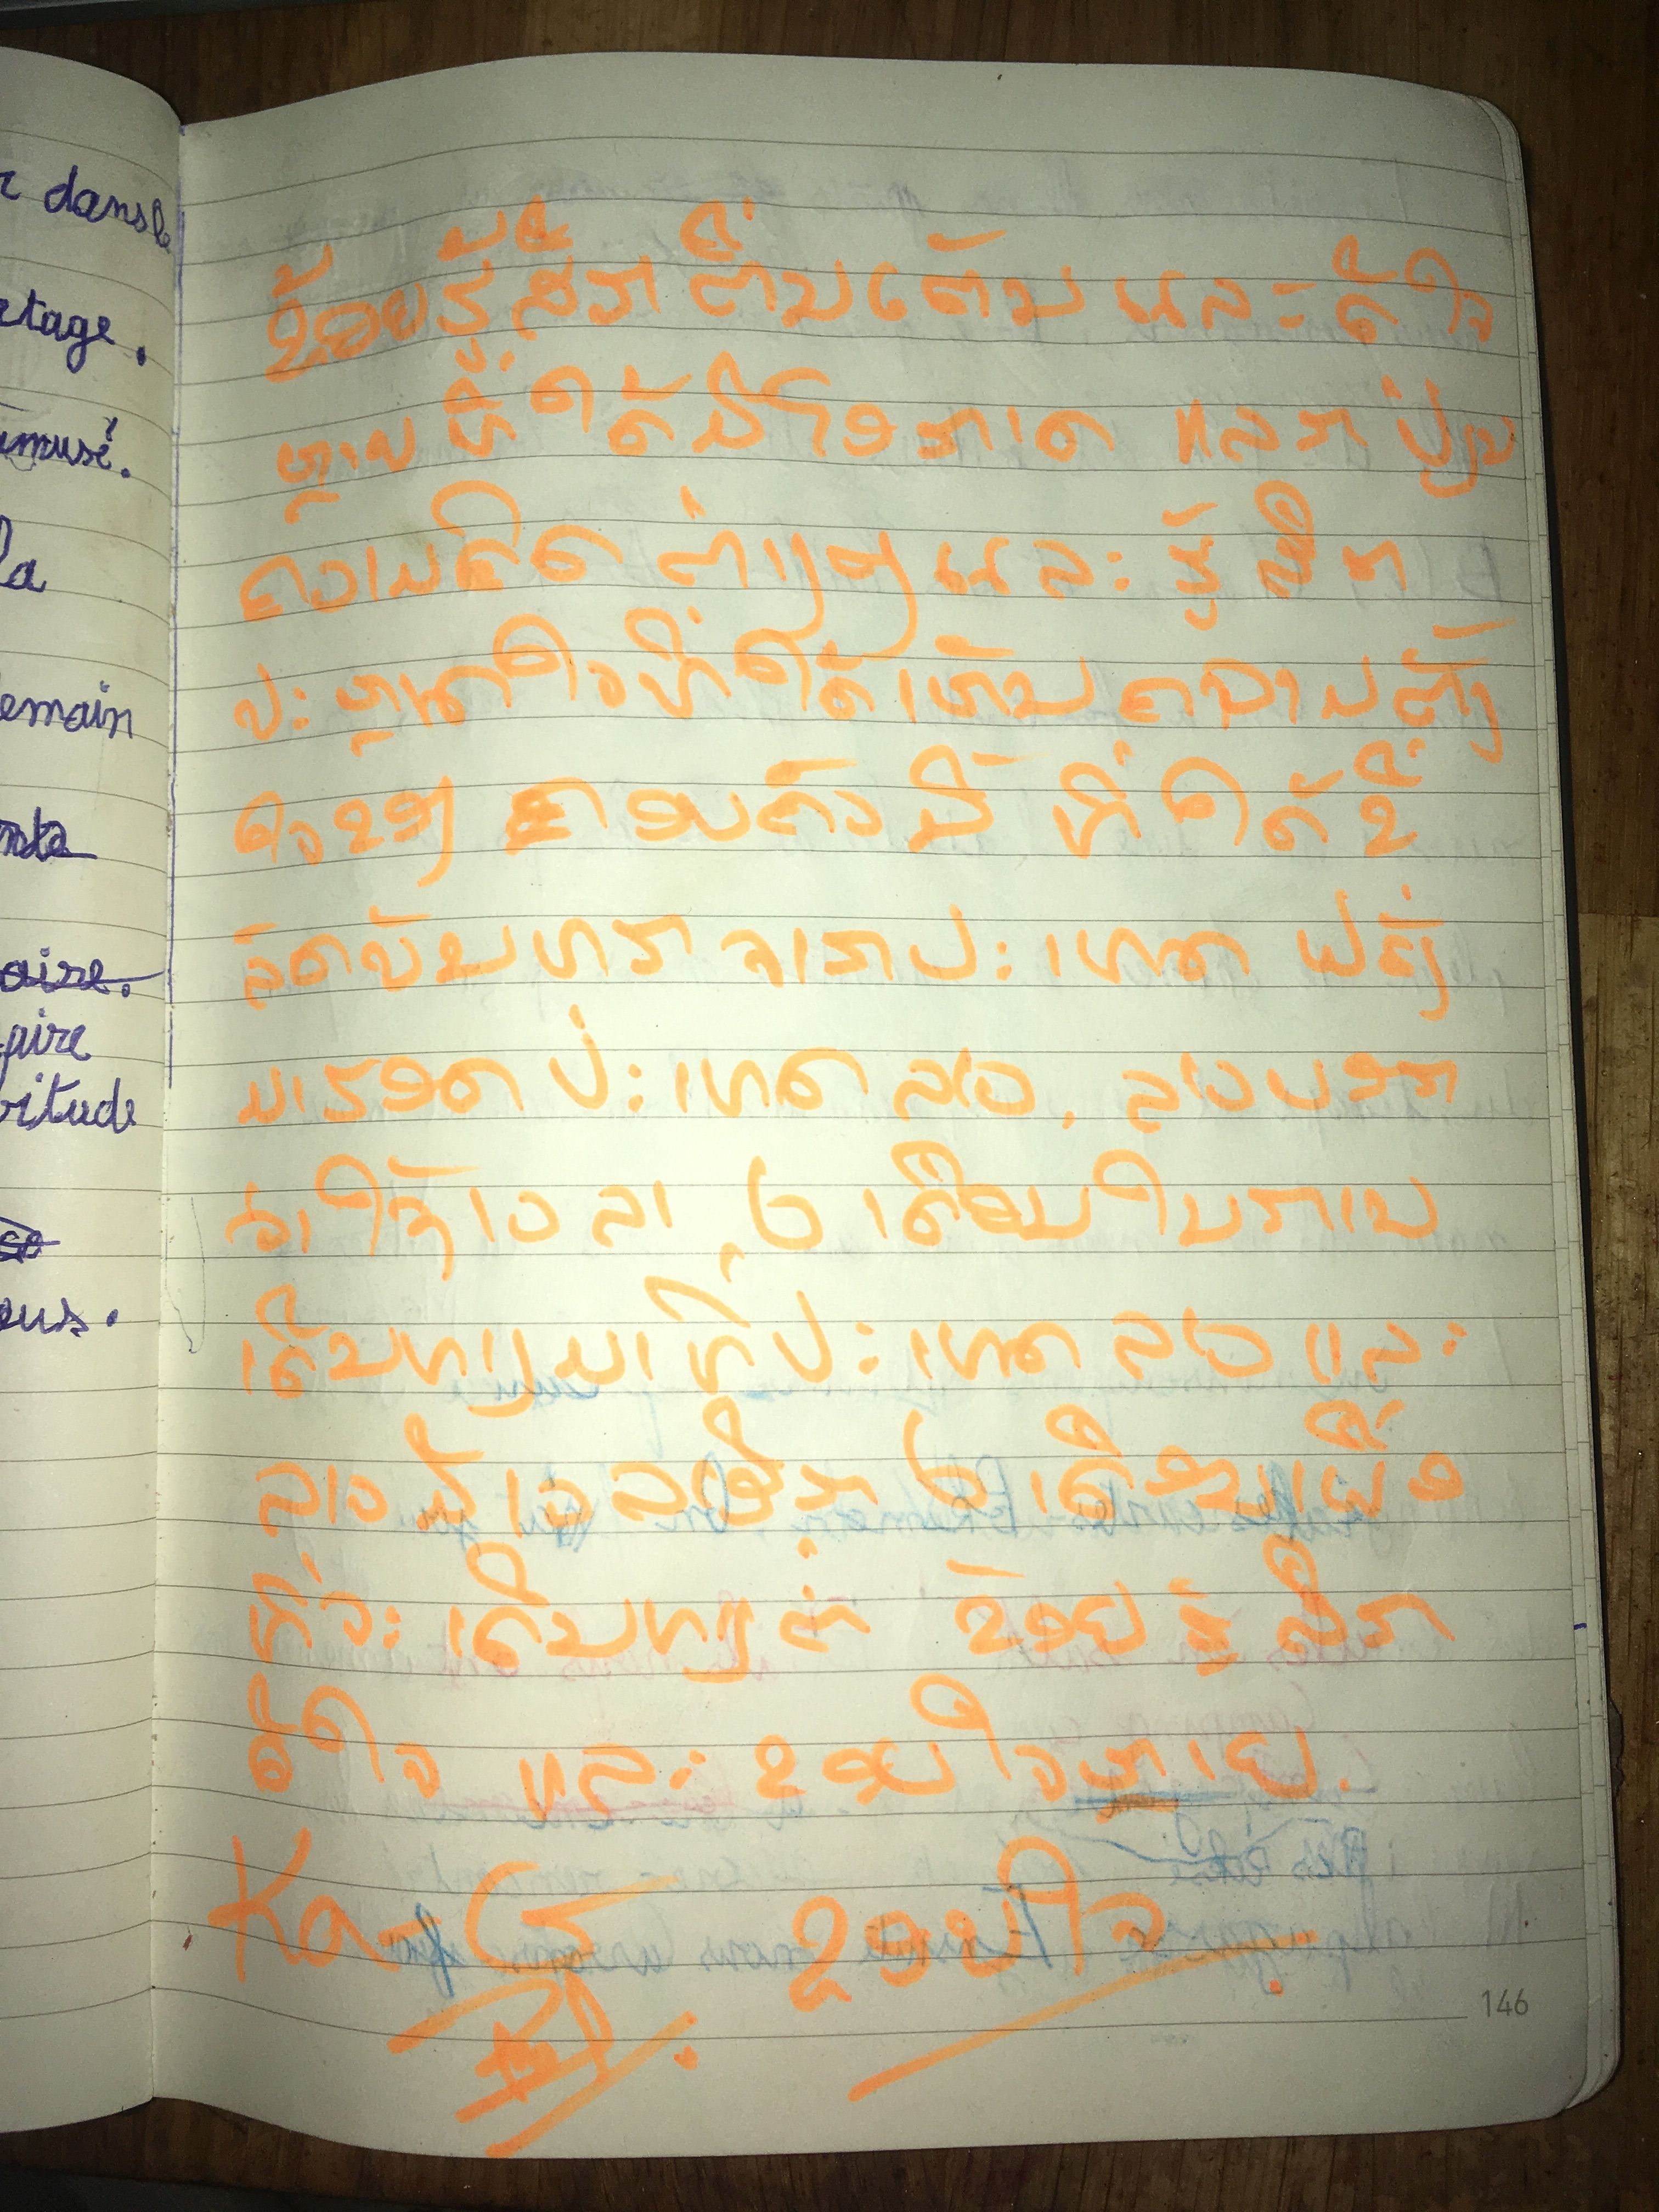 r dans le
rtage.
amusé.
la
demain
nta
oire.
faire
bitude
so
ous.
ຂ້ອຍຮູ້ສຶກຕື່ນເຕັ້ນ ແລະ ດີໃຈ
ຫຼາຍທີ່ໄດ້ມີໂອກາດ ແລກປ່ຽນ
ຄວາມຄິດຕ່າງໆ ແລະ ຮູ້ສຶກ
ປະຫຼາດໃຈທີ່ໄດ້ເຫັນຄວາມຕັ້ງ
ໃຈຂອງ ຄອບຄົວນີ້ ທີ່ໄດ້ຂີ່
ລົດບັນທຸກ ຈາກປະເທດ ຝລັ່ງ
ມາຮອດ ປະເທດ ລາວ, ລາວບອກ
ວ່າໃຊ້ເວລາ 6 ເດືອນໃນການ
ເດີນທາງມາທີ່ປະເທດ ລາວ ແລະ
ລາວມີເວລາອີກ 6 ເດືອນເພື່ອ
ທີ່ຈະ ເດີນທາງຕໍ່ ຂ້ອຍຮູ້ສຶກ
ດີໃຈ ແລະ ຂອບໃຈຫຼາຍ.
ຂອບໃຈ
146